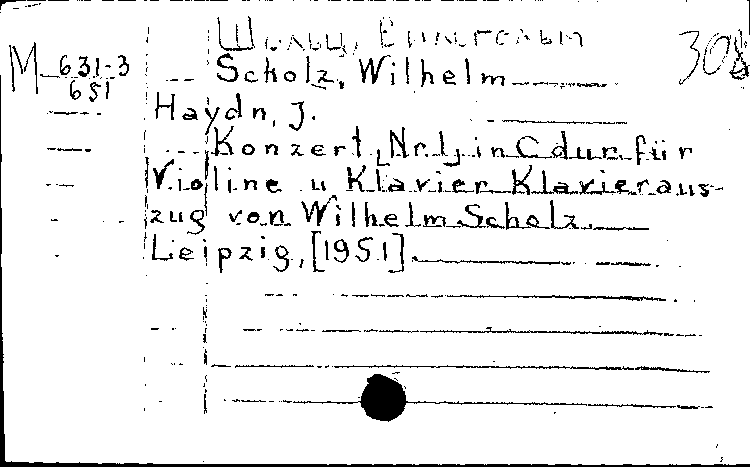 Шольц, Вильгельм
308
M 631-3
651
Scholz, Wilhelm
Haydn, J.
Konzert [Nr.1] in C dur für
Violine u Klavier Klavieraus-
zug von Wilhelm Scholz.
Leipzig, [1951].